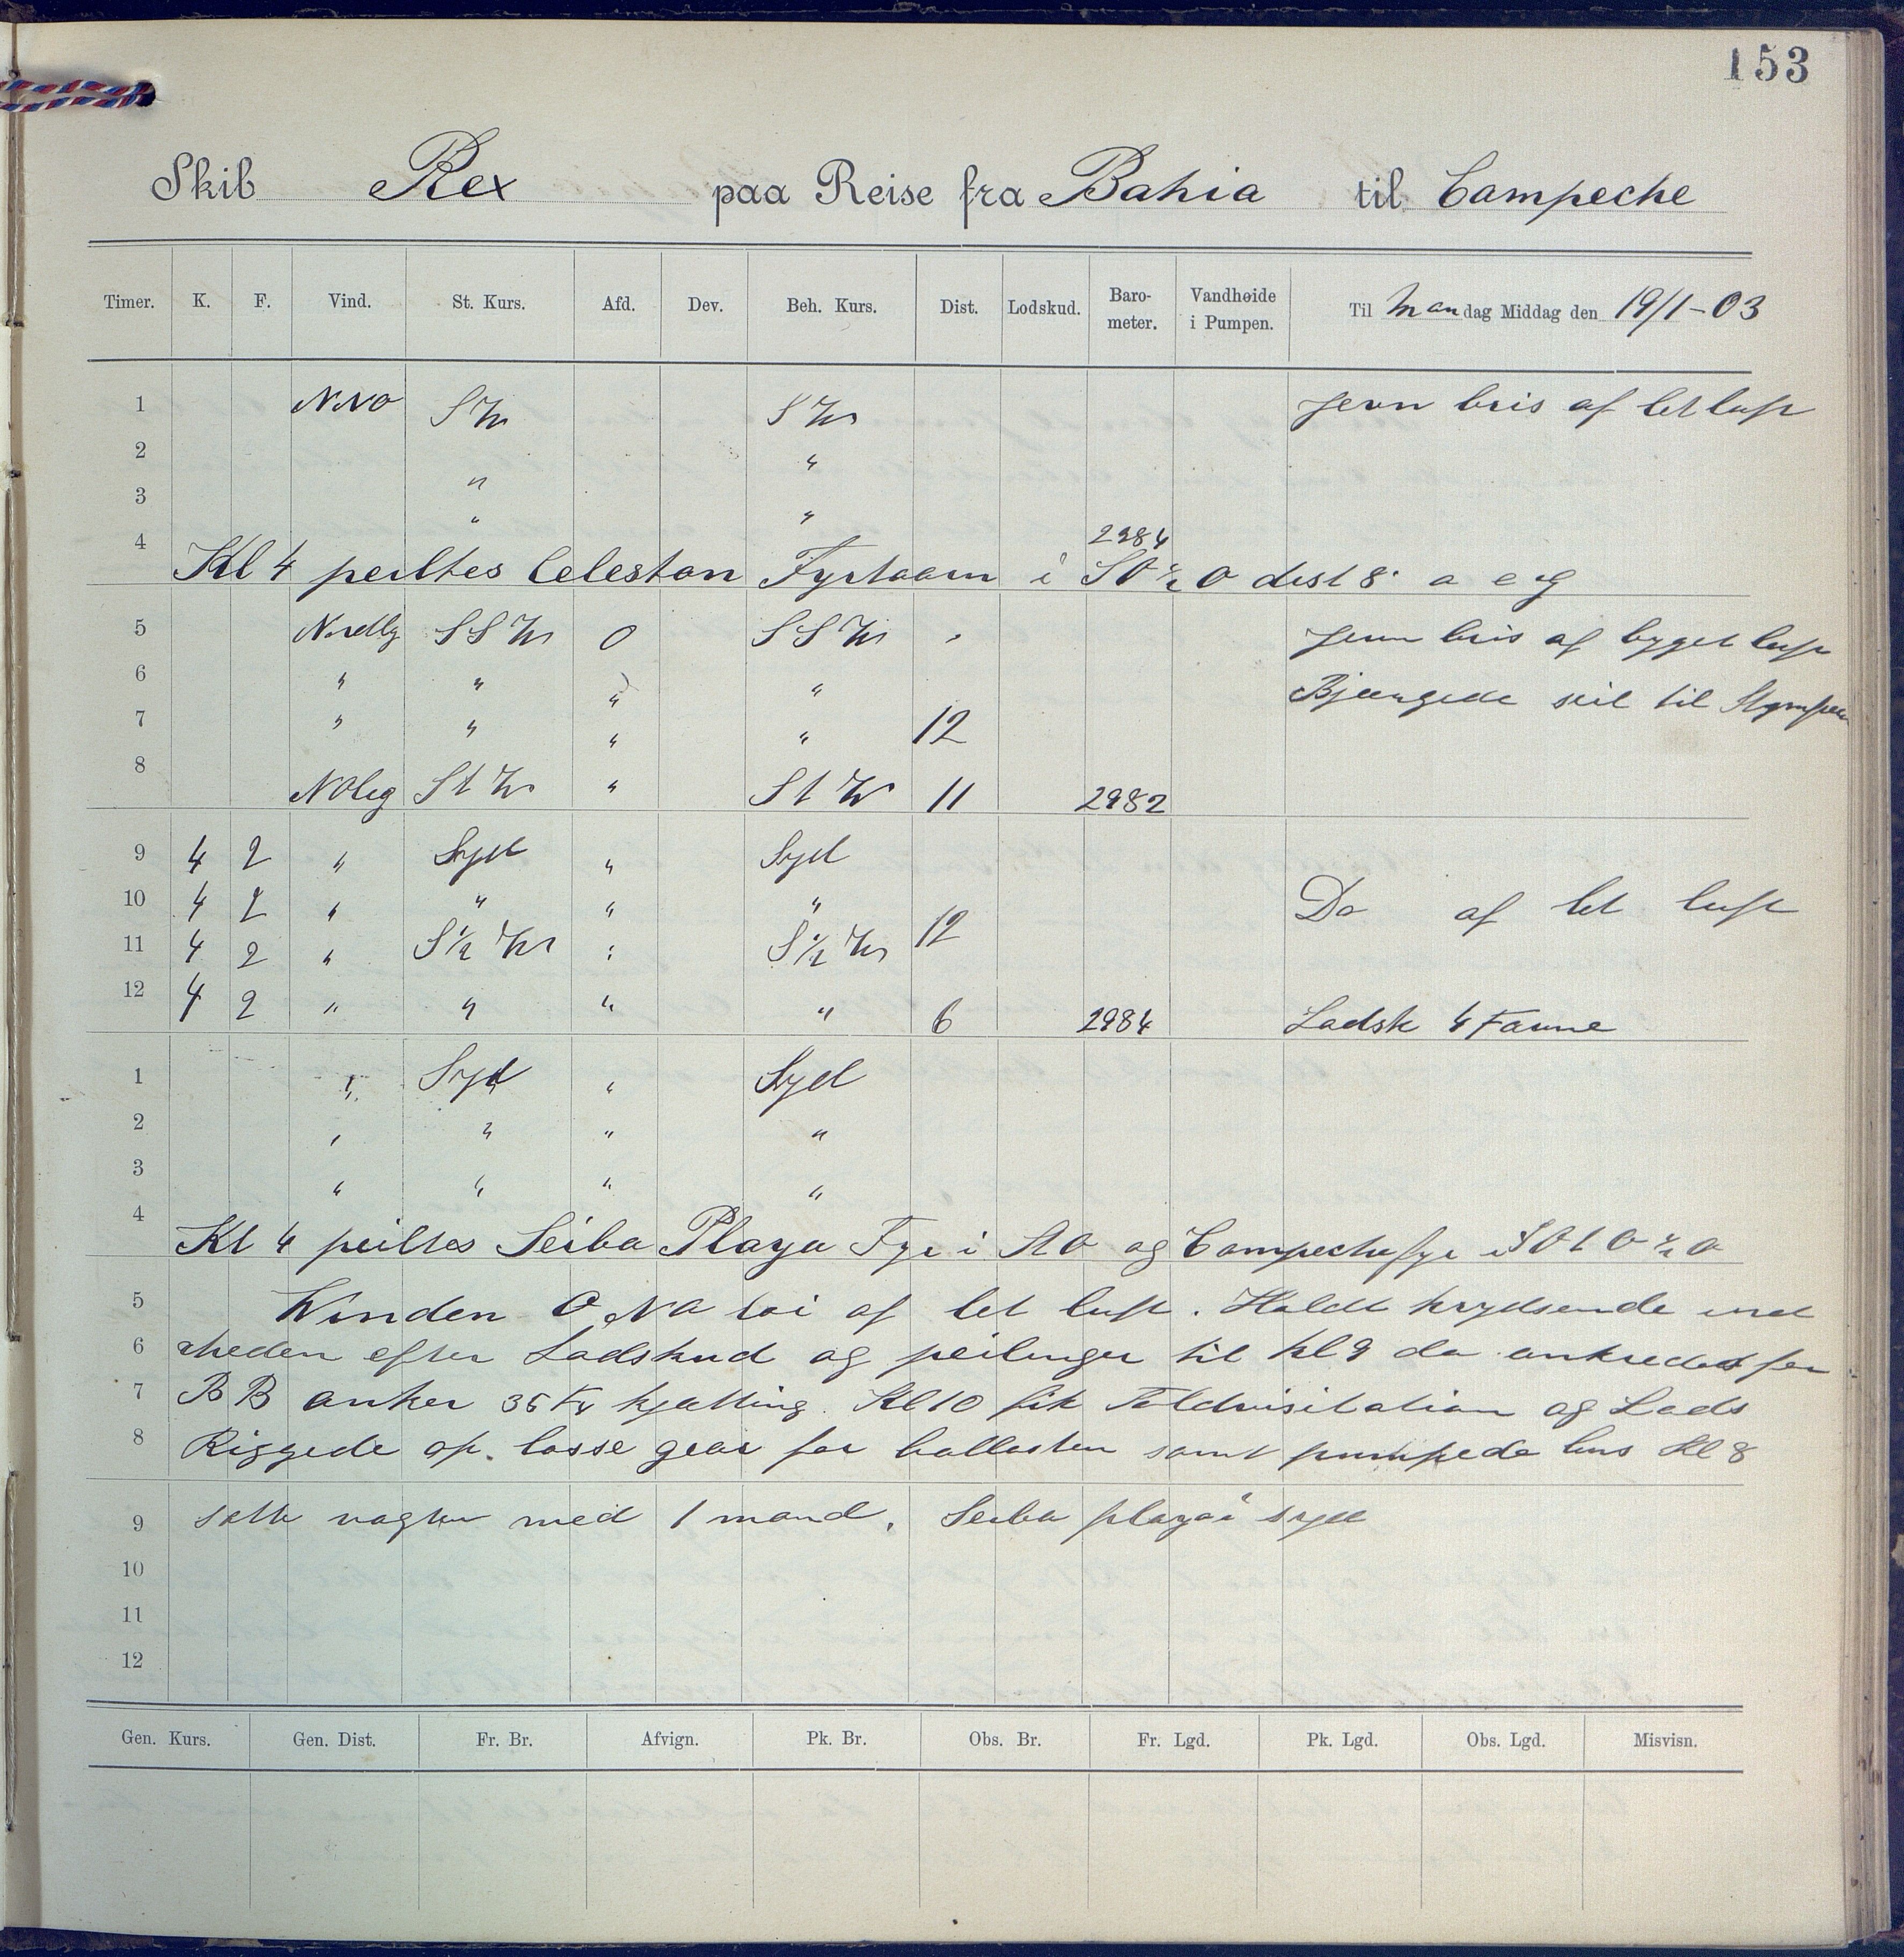 153
Skib Rex paa Reise fra Bahia til Campeche
Timer. K. F. Vind. St. Kurs. Afd. Dev. Beh. Kurs. Dist. Lodskud. Baro-meter. Vandhøide i Pumpen. Til Mandag Middag den 19/1-03
1 NNO SW SW Jevn bris af let luft
2 " "
3 " "
4 2984
Kl 4 peiltes Celestan Fyrtaarn i SO ½ O dist 8'
5 Nordlg SSW 0 SSW Jevn bris af bygget luft
6 " " " " Bjærgede seil til
7 " " " " 12
8 NOlig StW " StW 11 2982
9 4 2 " Syd " Syd
10 4 2 " " " " Do af let luft
11 4 2 " S½W " S½W 12
12 4 2 " " " " 6 2984 Lodsk 4 Favne
1 " Syd " Syd
2 " " " "
3 " " " "
4 Kl 4 peiltes Seiba Playa Fyr i StO og Campeche fyr i SOtO ½ O
5 Vinden ONO af let luft. Holdt krydsende ind
6 rheden efter Lodskud og peilinger til kl 9 da ankredes for
7 BB anker 36 Fv kjætting. Kl 10 fik Toldvisitation og Lods
8 Riggede op losse gear for ballasten samt pumpede læns Kl 8
9 satte vagten med 1 mand. Seiba playa i syd
10
11
12
Gen. Kurs. Gen. Dist. Fr. Br. Afvign. Pk. Br. Obs. Br. Fr. Lgd. Pk. Lgd. Obs. Lgd. Misvisn.